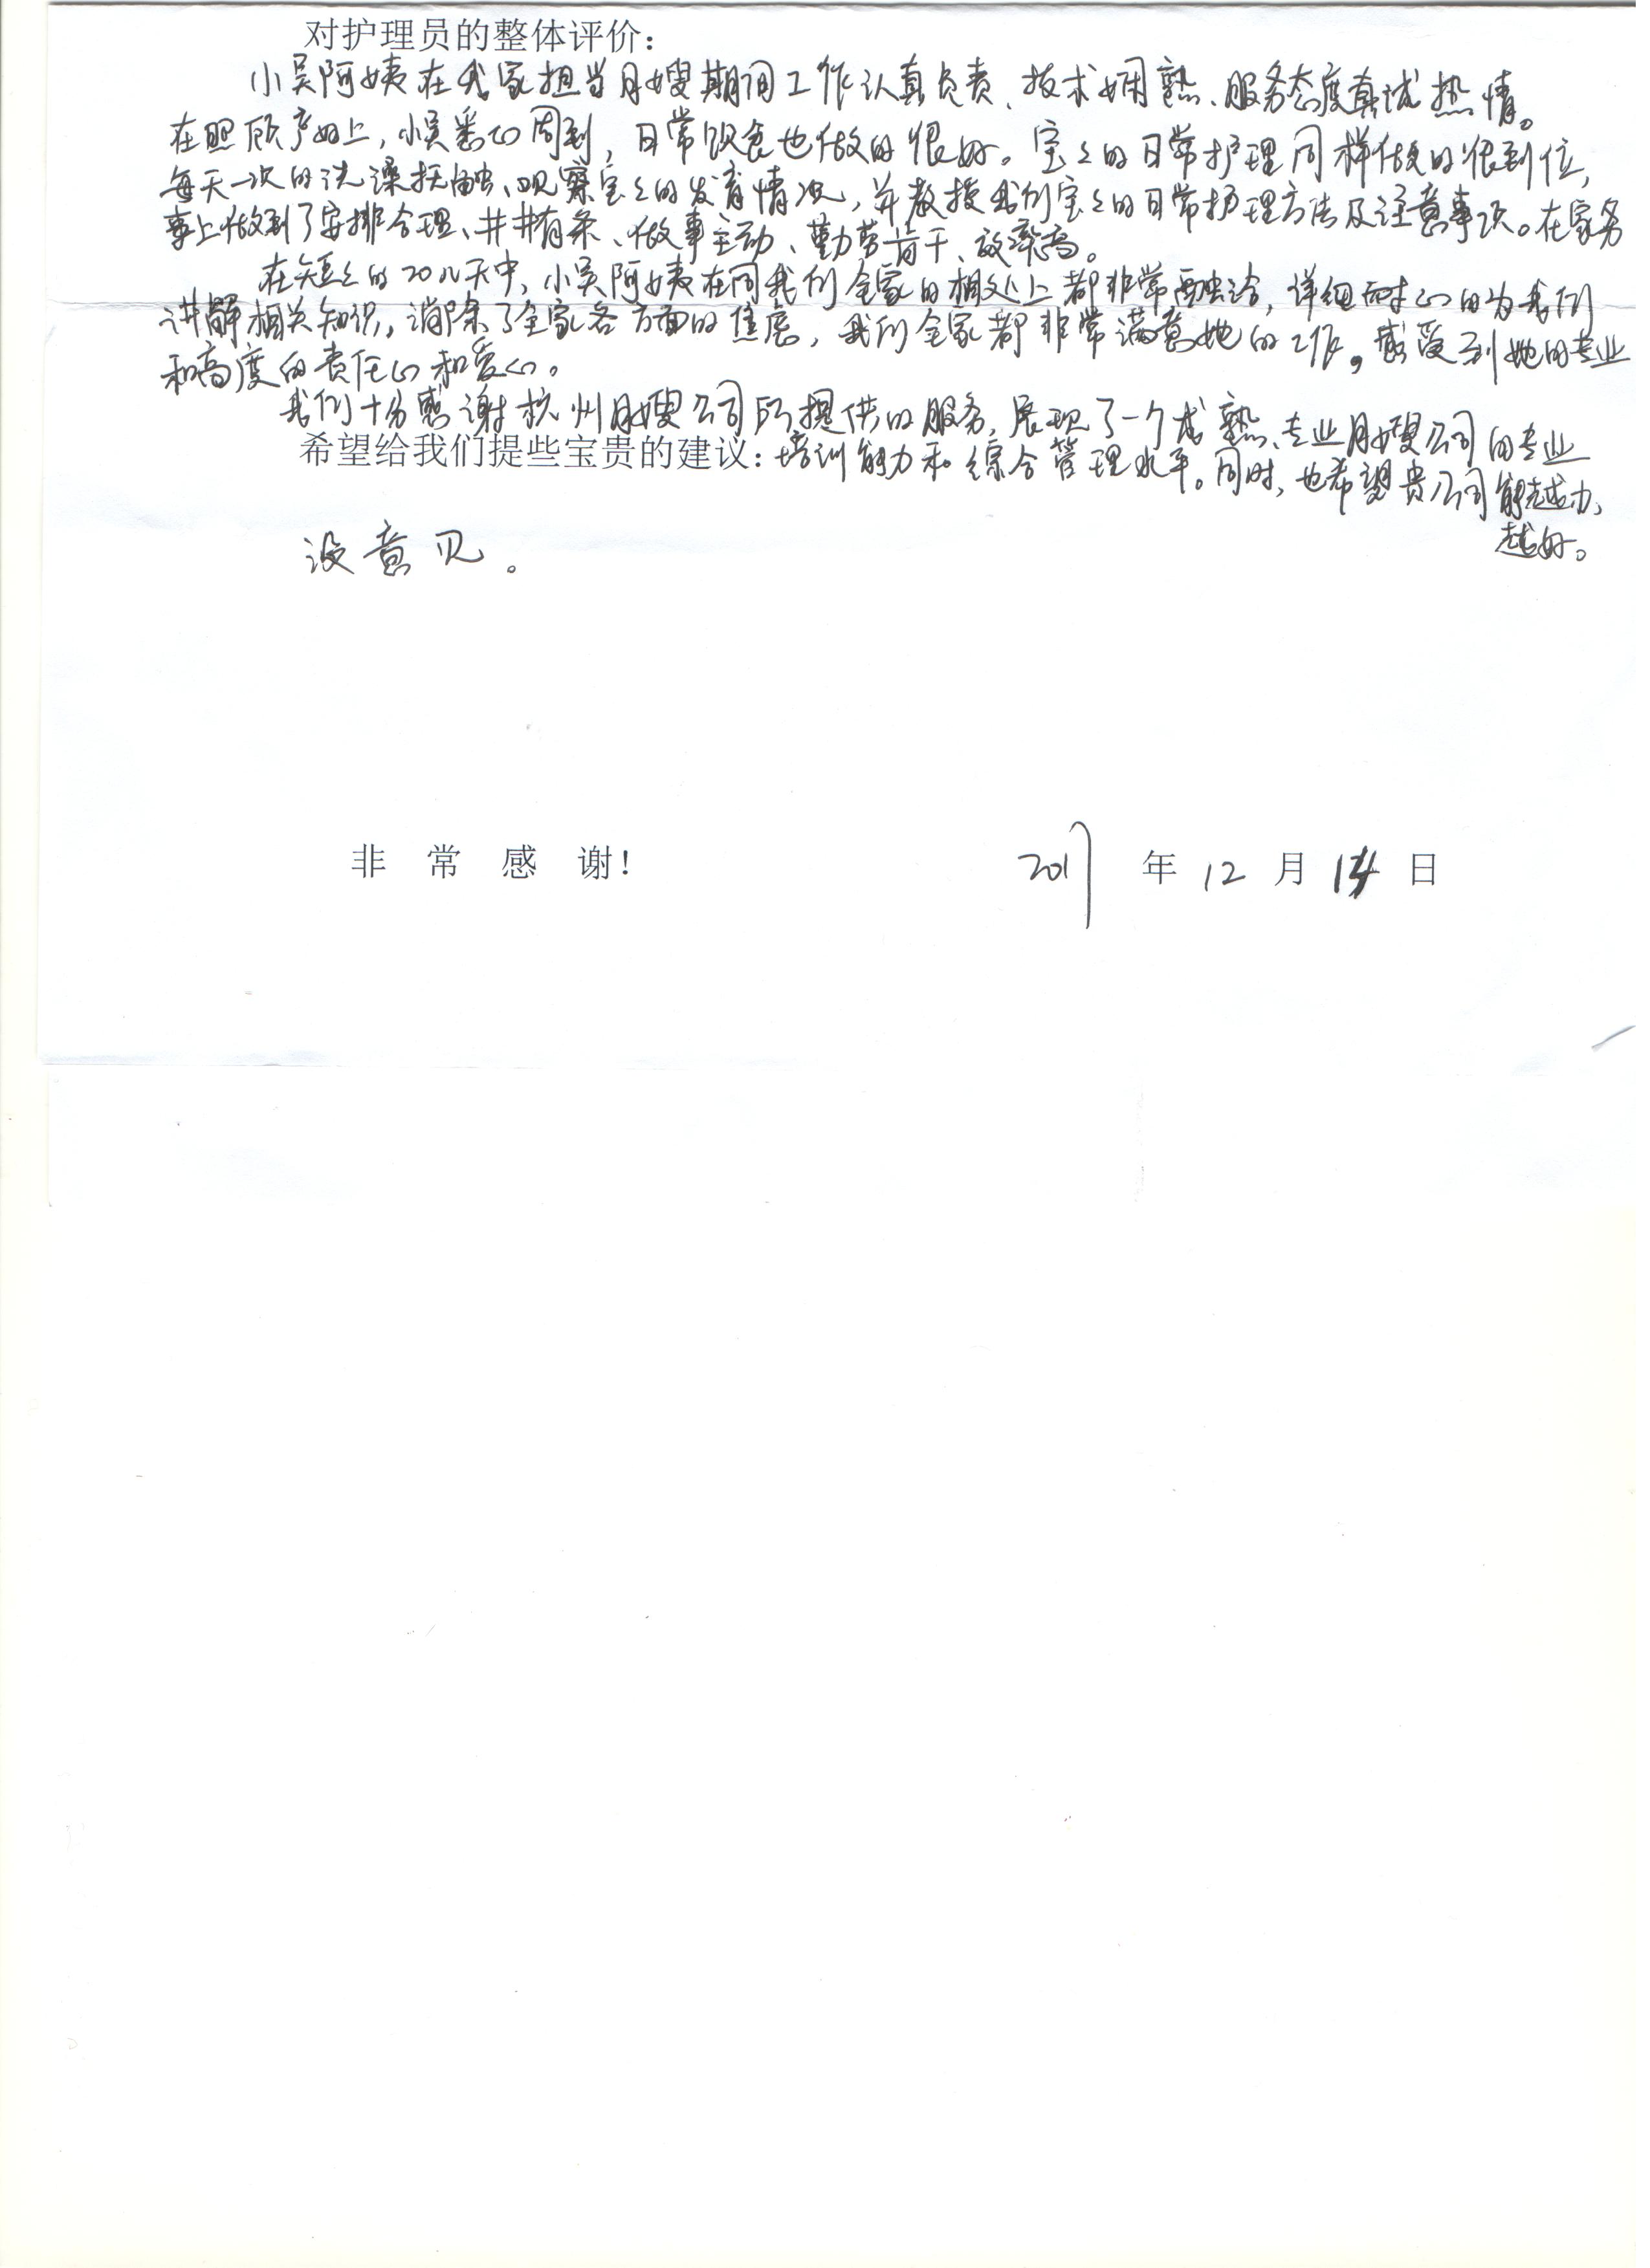 对护理员的整体评价：
小吴阿姨在我家担当月嫂期间工作认真负责、技术娴熟、服务态度真诚热情。
在照顾产妇上，小吴悉心周到，日常饮食也做的很好。宝宝的日常护理同样做的很到位，
每天一次的洗澡抚触、观察宝宝的发育情况，并教授我们宝宝的日常护理方法及注意事项。在家务
事上做到了安排合理、井井有条、做事主动、勤劳肯干、效率高。
在短短的20几天中，小吴阿姨在同我们全家的相处上都非常融洽，详细耐心的为我们
讲解相关知识，消除了全家各方面的焦虑，我们全家都非常满意她的工作。感受到她的专业
和高度的责任心和爱心。
我们十分感谢杭州月嫂公司所提供的服务，展现了一个成熟、专业月嫂公司的专业
希望给我们提些宝贵的建议：培训能力和综合管理水平。同时，也希望贵公司能越办、
越好。
没意见。
非 常 感 谢！ 2017 年 12 月 14 日